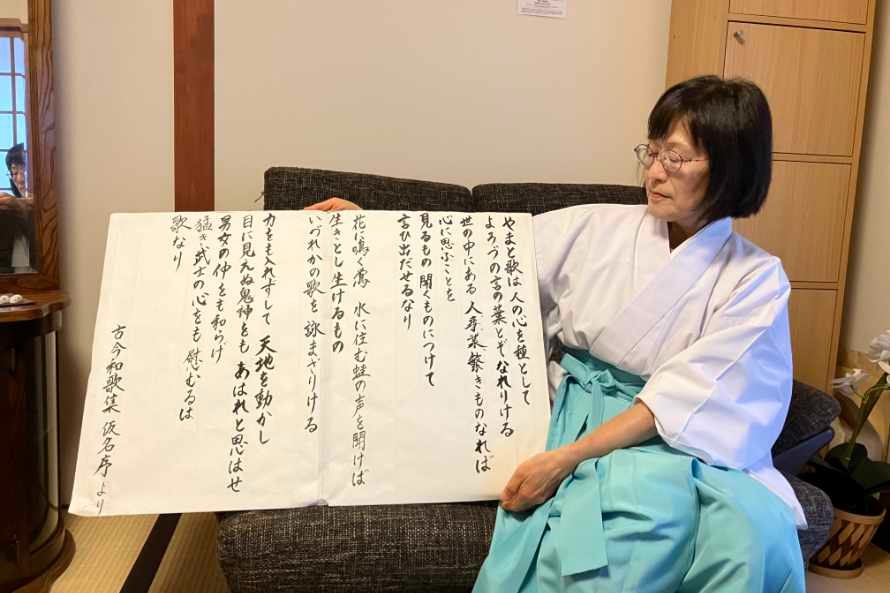 やまと歌は 人の心を種として
よろづの言の葉とぞなれりける
世の中にある 人 事 業 繁きものなれば
心に思ふことを
見るもの 聞くものにつけて
言ひ出だせるなり
花に鳴く鶯 水に住む蛙の声を聞けば
生きとし生けるもの
いづれかの歌を 詠まざりける
力をも入れずして 天地を動かし
目に見えぬ鬼神をも あはれと思はせ
男女の仲をも和らげ
猛き武士の心をも 慰むるは
歌なり
古今和歌集 仮名序より